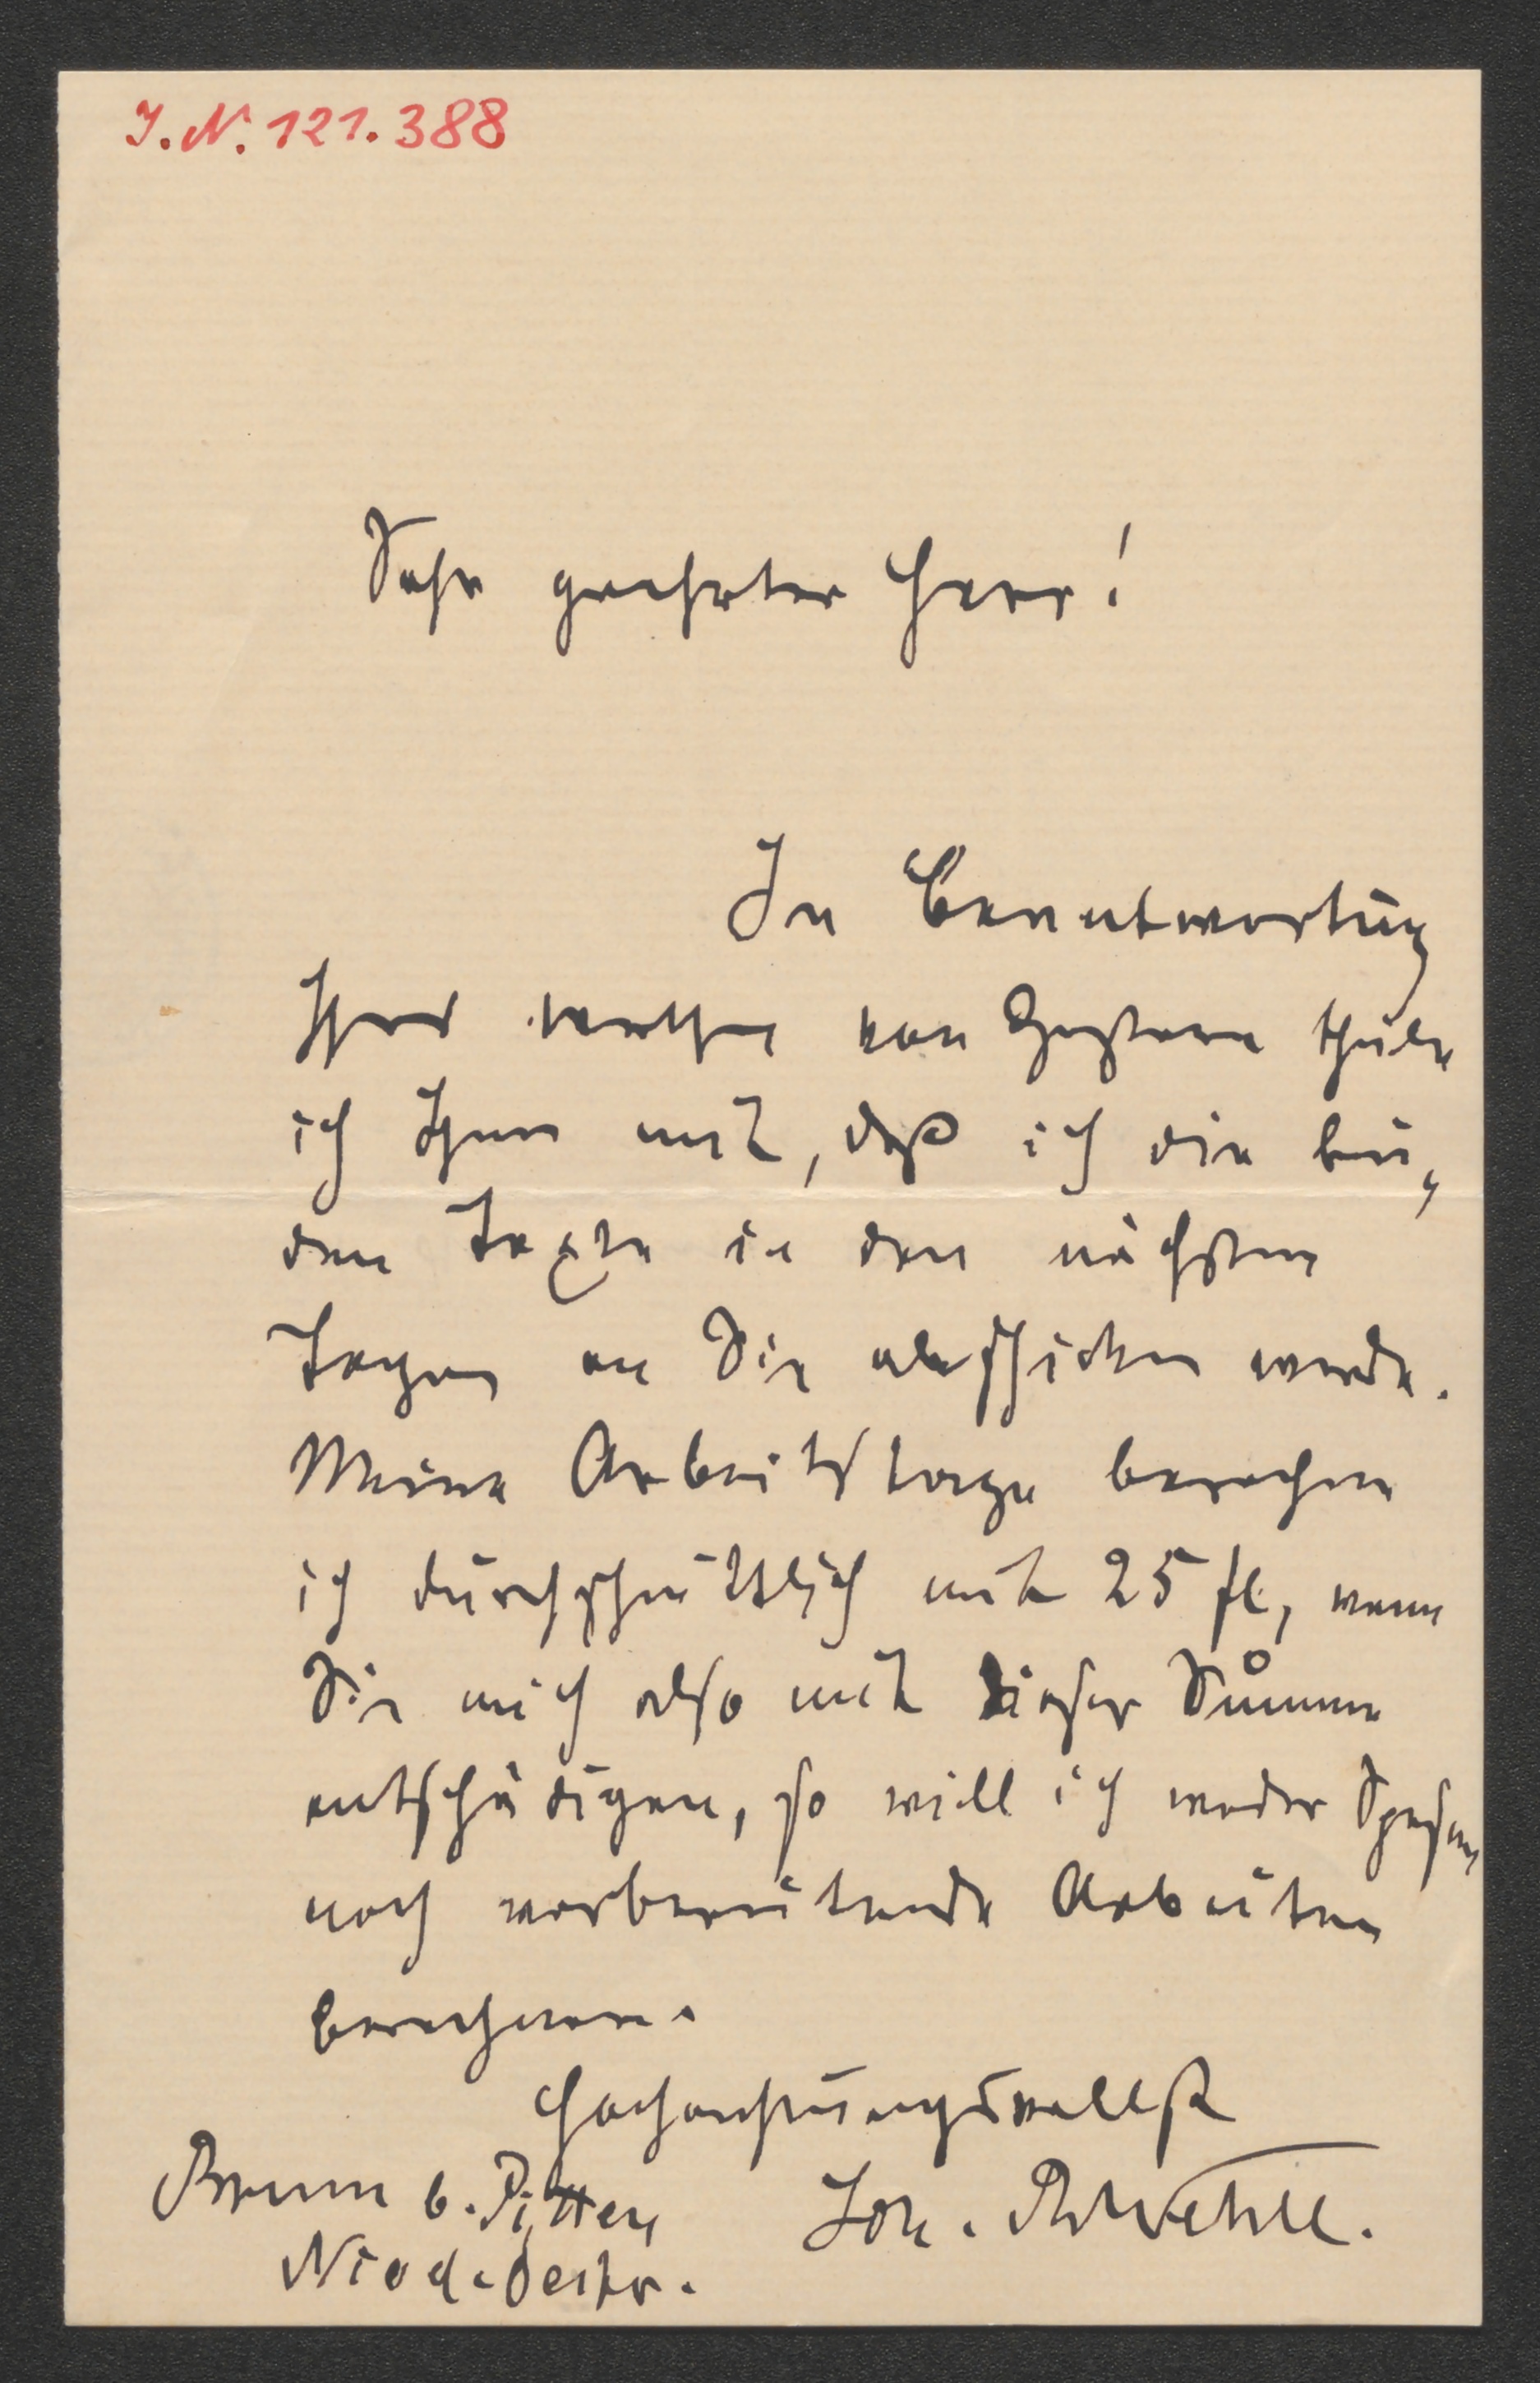 J.N. 121.388
Sehr geehrter Herr!
In Beantwortung
Ihres werthen von Gestern theile
ich Ihnen mit, daß ich die bei-
den Texte in den nächsten
Tagen an Sie abschicken werde.
Meine Arbeitstage berechne
ich durchschnittlich mit 25 fl, wenn
Sie mich also mit dieser Summe
entschädigen, so will ich weder Spesen
noch vorbereitende Arbeiten
berechnen.
Hochachtungsvollst
Brunn b. Pitten Joh.
Nied. Oestr.